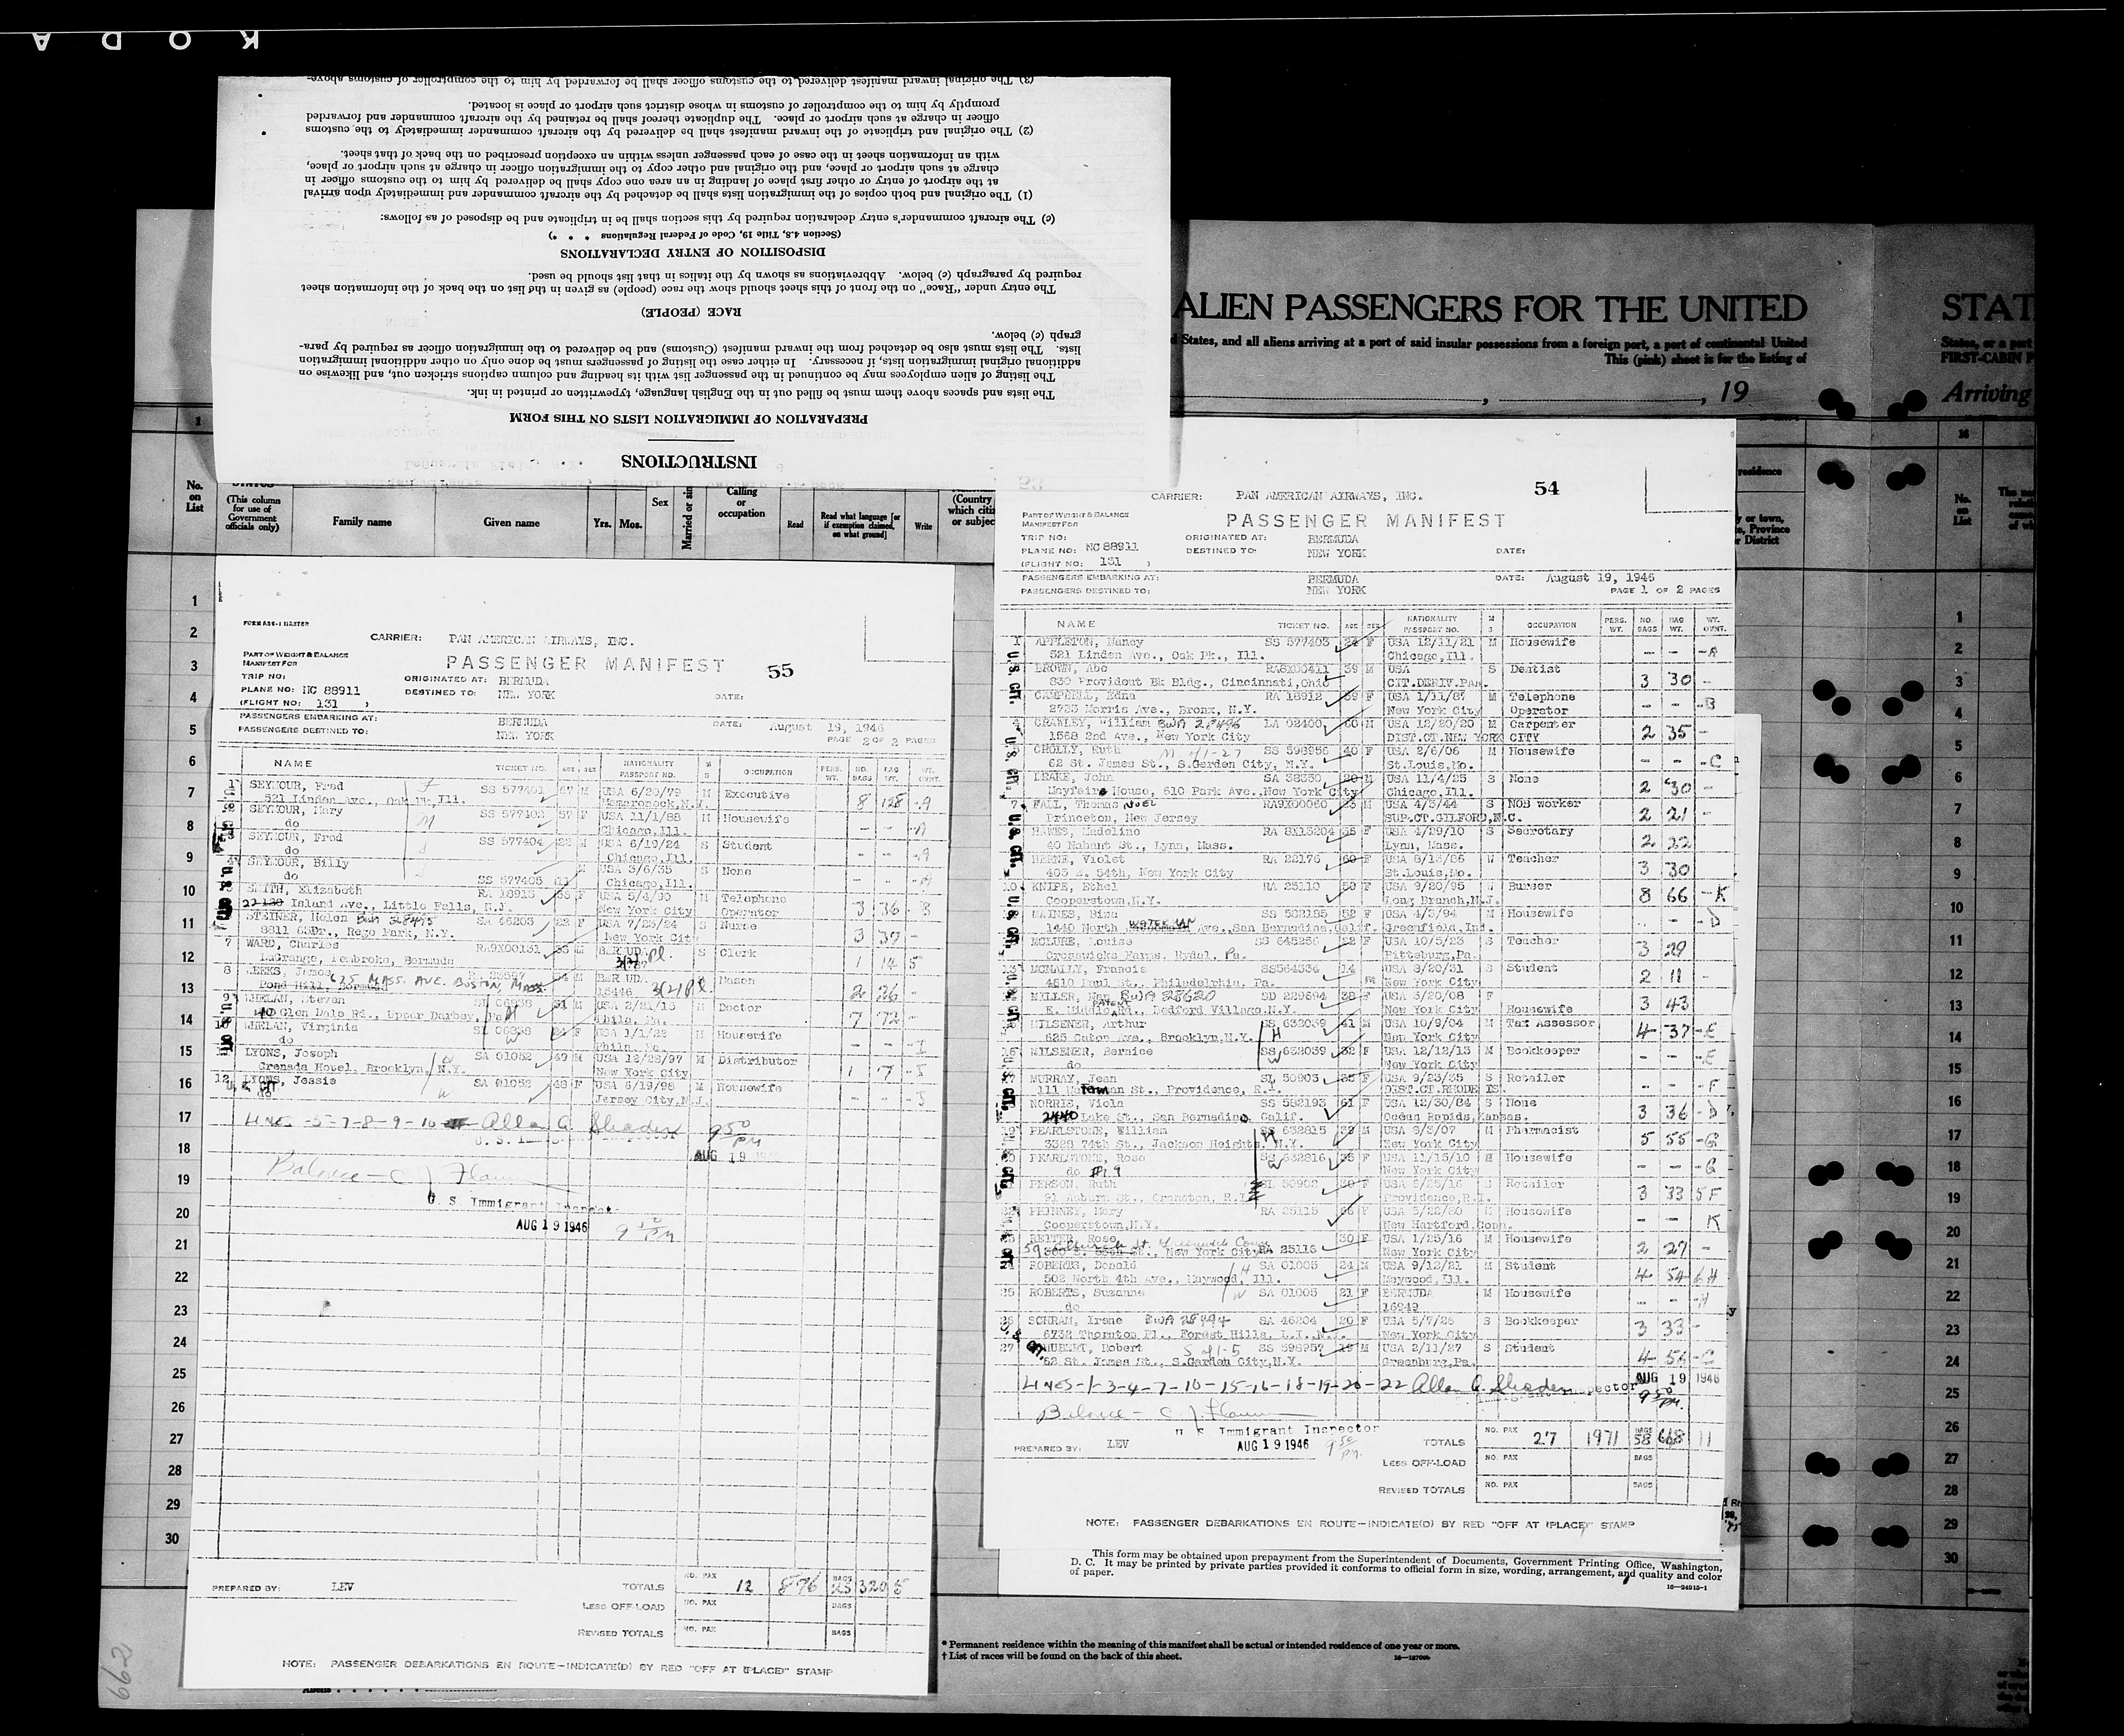 KODA
(3) The original inward manifest delivered to the customs officer shall be forwarded by him to the comptroller of customs above-
promptly by him to the comptroller of customs in whose district such airport or place is located.
officer in charge at such airport or place. The duplicate thereof shall be retained by the aircraft commander and forwarded
(2) The original and triplicate of the inward manifest shall be delivered by the aircraft commander immediately to the customs
with an information sheet in the case of each passenger unless within an exception prescribed on the back of that sheet.
charge at such airport or place, and the original and other copy to the immigration officer in charge at such airport or place,
at the airport of entry or other first place of landing in an area one copy shall be delivered by him to the customs officer in
(1) The original and both copies of the immigration lists shall be detached by the aircraft commander and immediately upon arrival
(c) The aircraft commander's entry declaration required by this section shall be in triplicate and be disposed of as follows:
(Section 4.8, Title 19, Code of Federal Regulations * * *)
DISPOSITION OF ENTRY DECLARATIONS
required by paragraph (c) below. Abbreviations as shown by the italics in that list should be used.
The entry under "Race" on the front of this sheet should show the race (people) as given in the list on the back of the information sheet
RACE (PEOPLE)
graph (c) below.
lists. The lists must also be detached from the inward manifest (Customs) and be delivered to the immigration officer as required by para-
additional original immigration lists, if necessary. In either case the listing of passengers must be done only on other additional immigration
The listing of alien employees may be continued in the passenger list with its heading and column captions stricken out, and likewise on
The lists and spaces above them must be filled out in the English language, typewritten or printed in ink.
PREPARATION OF IMMIGRATION LISTS ON THIS FORM
INSTRUCTIONS
ALIEN PASSENGERS FOR THE UNITED STAT
States, and all aliens arriving at a port of said insular possessions from a foreign port, a part of continental United
This (pink) sheet is for the listing of
FIRST-CABIN P
, 19
Arriving
No. on List
(This column for use of Government officials only)
Family name
Given name
Yrs. Mos.
Sex
Calling or occupation
Read
Read what language [or if exemption claimed, on what ground]
Write
FORM ASE-1 MASTER
CARRIER: PAN AMERICAN AIRWAYS, INC.
PART OF WEIGHT & BALANCE
MANIFEST FOR
PASSENGER MANIFEST 55
TRIP NO: ORIGINATED AT: BERMUDA
PLANE NO: NC 88911 DESTINED TO: NEW YORK DATE:
(FLIGHT NO: 131 )
PASSENGERS EMBARKING AT: BERMUDA DATE: August 19, 1946
PASSENGERS DESTINED TO: NEW YORK PAGE 2 OF 2 PAGES
NAME TICKET NO. AGE SEX NATIONALITY PASSPORT NO. M S OCCUPATION PERS. WT. NO. BAGS BAG WT. WT. OVNT.
1 SEYMOUR, Fred SS 577401 67 M USA 6/20/79 M Executive 8 128 -A
521 Linden Ave., Oak Pk, Ill. Mamaroneck, N.Y.
SEYMOUR, Mary SS 577402 57 F USA 11/1/88 M Housewife - - -A
do Chicago, Ill.
SEYMOUR, Fred SS 577404 22 M USA 6/19/24 S Student - - -A
do Chicago, Ill.
4 SEYMOUR, Billy M USA 3/6/35 S None - - -A
do SS 577405 11 Chicago, Ill.
SMITH, Elizabeth RA 18913 56 F USA 5/4/90 M Telephone
Island Ave., Little Falls, N.J. New York City Operator 3 36 -B
STEINER, Helen SA 46203 22 F USA 7/23/24 S Nurse
8811 63Dr., Rego Park, N.Y. New York City 3 37 -
7 WARD, Charles RA9X00131 53 M BERMUDA S Clerk
LaGrange, Pembroke, Bermuda 1 14 5
8 WEEKS, James 625 MASS. AVE. BOSTON, MASS. M BERMUDA Mason
Pond Hill, Bermuda 15446 2 26 -
9 WHELAN, Steven SL 06938 31 M USA 2/21/15 M Doctor
Glen Dale Rd., Upper Darby, Pa. Phila. Pa. 7 72 -
10 WHELAN, Virginia F M Housewife
do Phila. Pa. - - -I
LYONS, Joseph SA 01052 49 M USA 12/28/97 M Distributor
Granada Hotel, Brooklyn, N.Y. New York City 1 7 -I
12 LYONS, Jessie SA 01052 48 F USA 6/19/98 M Housewife
do Jersey City, N.J.
LINES -5-7-8-9-10 Allan A. Shader 9 50 PM
AUG 19 1946
Balance - C J Flann
U S Immigrant Inspector
AUG 19 1946
PREPARED BY: LEV TOTALS NO. PAX 12 876 BAGS 25 320 5
LESS OFF-LOAD NO. PAX BAGS
REVISED TOTALS NO. PAX BAGS
NOTE: PASSENGER DEBARKATIONS EN ROUTE—INDICATE(D) BY RED "OFF AT (PLACE)" STAMP
662
CARRIER: PAN AMERICAN AIRWAYS, INC. 54
PART OF WEIGHT & BALANCE
MANIFEST FOR
PASSENGER MANIFEST
TRIP NO: ORIGINATED AT: BERMUDA
PLANE NO: NC 88911 DESTINED TO: NEW YORK DATE:
(FLIGHT NO: 131 )
PASSENGERS EMBARKING AT: BERMUDA DATE: August 19, 1946
PASSENGERS DESTINED TO: NEW YORK PAGE 1 OF 2 PAGES
NAME TICKET NO. AGE SEX NATIONALITY PASSPORT NO. M S OCCUPATION PERS. WT. NO. BAGS BAG WT. WT. OVNT.
1 APPLETON, Nancy SS 577403 24 F USA 12/11/21 M Housewife
521 Linden Ave., Oak Pk., Ill. Chicago, Ill. - - -A
BROWN, Abe RA8X00411 39 M USA S Dentist
830 Provident Bk Bldg., Cincinnati, Ohio CIT.DERIV.PAR. 3 30 -
CAMPBELL, Edna RA 18912 59 F USA 1/11/87 M Telephone
2723 Morris Ave., Bronx, N.Y. New York City Operator - - -B
4 CRAWLEY, William BWA 28496 LA 02400 60 M USA 12/20/20 M Carpenter
1568 2nd Ave., New York City DIST.CT.NEW YORK CITY 2 35 -
CHOLLY, Ruth SS 598956 40 F USA 2/6/06 M Housewife
62 St. James St., S.Garden City, N.Y. St.Louis, Mo. - - -C
DRAKE, John SA 38350 20 M USA 11/4/25 S None
Mayfair House, 610 Park Ave. New York City Chicago, Ill. 2 30 -
7 FALL, Thomas NOEL RA9X00060 M USA 4/3/44 S NOS worker
Princeton, New Jersey SUP.CT.GILFORD, N.C. 2 21 -
HAWES, Madeline RA 8X13204 F USA 4/29/10 S Secretary
40 Nahant St., Lynn, Mass. Lynn, Mass. 2 22
HERNE, Violet RA 22176 60 F USA 8/13/86 W Teacher
405 E. 54th, New York City St.Louis, Mo. 3 30
10 KNIPE, Ethel RA 25110 50 F USA 9/20/95 W Burser
Cooperstown, N.Y. Long Branch, N.J. 8 66 -K
52 F USA 4/3/94 M Housewife
1440 North Ave., San Bernadina, Calif. Greenfield, Ind. -D
MCLURE, Louise SS 645266 22 F USA 10/5/23 S Teacher
Crosswicks Farms, Rydal, Pa. Pittsburg, Pa. 3 29
MCNALLY, Francis SS564334 14 USA 8/20/31 S Student
4610 Paul St., Philadelphia, Pa. New York City 2 11 -
MILLER, BWA 28620 SD 229694 38 F USA 3/20/08 F
E. Middle Patent Rd., Bedford Village, N.Y. New York City Housewife 3 43
MILSENER, Arthur SS 632039 41 M USA 10/9/04 M Tax Assessor
625 Caton Ave., Brooklyn, N.Y. New York City 4 37 -E
16 MILSENER, Bernice SS 632039 32 F USA 12/12/13 M Bookkeeper
do New York City - - -E
MURRAY, Jean SL 50903 F USA 9/23/35 S Retailer
111 St., Providence, R.I. DIST.CT.RHODE IS. - - -F
NORRIE, Viola SS 582193 61 F USA 12/30/84 S None
2440 Lake St., San Bernadino Calif. Ocean Rapids, Kansas. 3 36 -D
PEARLSTONE, William SS 632815 39 M USA 6/3/07 M Pharmacist
3529 74th St., Jackson Heights, N.Y. New York City 5 55 -G
PEARLSTONE, Rose SS 632816 35 F USA 11/15/10 M Housewife
do New York City - - -G
PERSON, Ruth SL 50902 F USA 5/25/16 S Retailer
91 Auburn St., Cranston, R.I. Providence, R.I. 3 33 5 F
PHINNEY, Mary RA 25115 66 F USA 5/22/80 M Housewife
Cooperstown, N.Y. New Hartford, Conn. - - K
REITER, Rose 30 F USA 1/25/16 M Housewife
59 Church St. Greenwich Conn. New York City RA 25116 New York City 2 27 -
ROBERTS, Donald SA 01005 24 M USA 9/12/21 M Student
502 North 4th Ave., Maywood, Ill. Maywood, Ill. 4 54 6 H
25 ROBERTS, Suzanne SA 01005 21 F BERMUDA M Housewife
do 16949 - - -H
26 SCHRAM, Irene BWA 28494 SA 46204 20 F USA 5/7/26 S Bookkeeper
6732 Thornton Pl., Forest Hills, L.I., N.Y. New York City 3 33 -
27 HUBERT, Robert SS 598957 19 M USA 2/11/27 S Student
62 St. James St., S.Garden City, N.Y. Greenburg, Pa. 4 56 -C
LINES-1-3-4-7-10-15-16-18-19-20-22 Allan A. Shader AUG 19 1946
9 50 PM.
Balance - C J Flann
U S Immigrant Inspector
PREPARED BY: LEV AUG 19 1946 9 50 pm. TOTALS NO. PAX 27 1971 BAGS 58 668 11
LESS OFF-LOAD NO. PAX BAGS
REVISED TOTALS NO. PAX BAGS
NOTE: PASSENGER DEBARKATIONS EN ROUTE—INDICATE(D) BY RED "OFF AT (PLACE)" STAMP
This form may be obtained upon prepayment from the Superintendent of Documents, Government Printing Office, Washington,
D. C. It may be printed by private parties provided it conforms to official form in size, wording, arrangement, and quality and color
of paper.
16—24915-1
* Permanent residence within the meaning of this manifest shall be actual or intended residence of one year or more.
† List of races will be found on the back of this sheet.